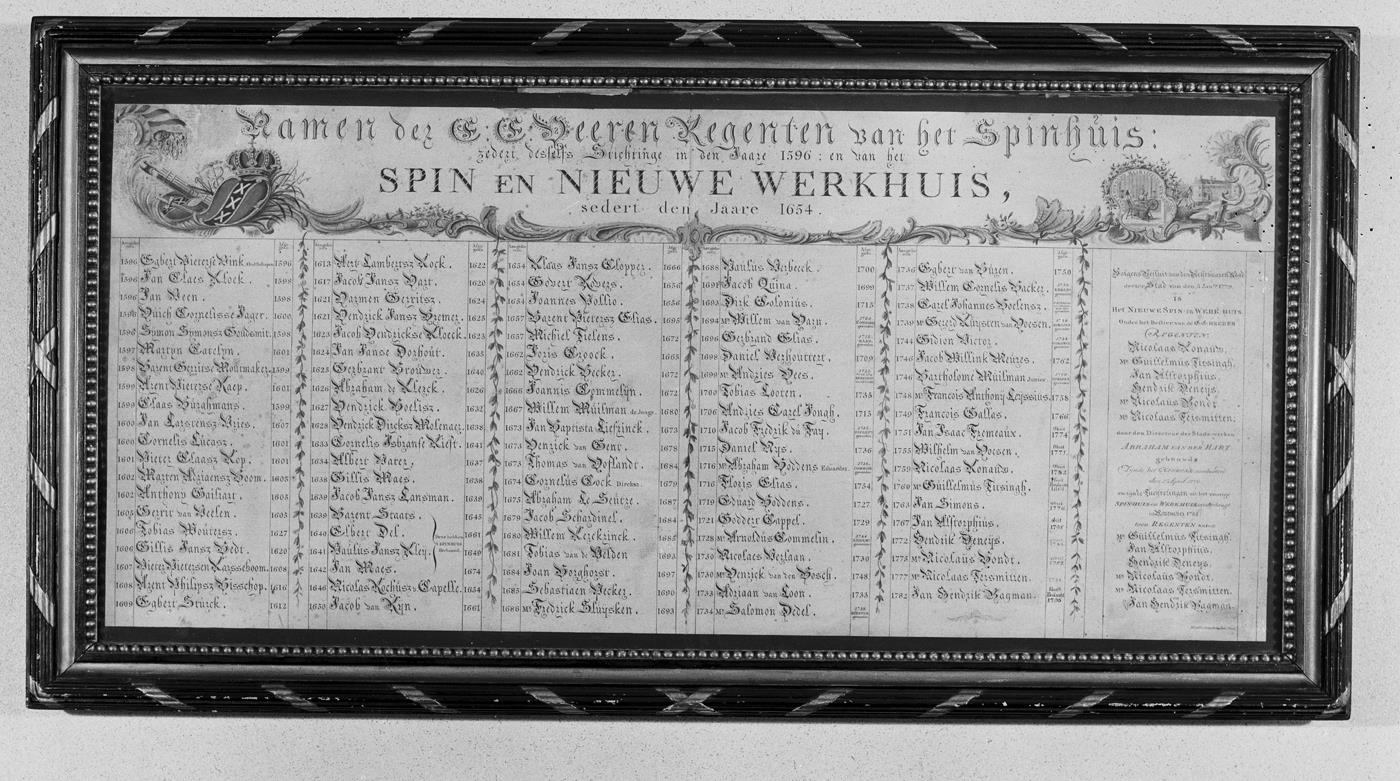 Namen der E: E: Heeren Regenten van het Spinhuis:
zedert desselfs Stichtinge in den Jaare 1596: en van het
SPIN EN NIEUWE WERKHUIS,
sedert den Jaare 1654.
1596 Egbert Pietersz Vink 1596
1596 Jan Claes Klock. 1598
1596 Jan Veen. 1598
Cornelisse Jager. 1600
1596 Symon Symonsz Goudsmit. 1598
1597 Martyn Catelyn. 1601
1598 Barent Gerritse Moutmaker 1599
1599 Arent Pieterse Raep. 1601
1599 Claas Burghmans. 1599
1600 Jan Laurensz Spies. 1607
1600 Cornelis Lucasz. 1601
1601 Pieter Claasz Kop. 1601
1602 Marten Adriaensz Boom. 1605
1602 Anthony Gailiart. 1605
1605 Gerrit van Neelen. 1605
1606 Tobias Woutersz. 1627
1606 Gillis Jansz Bedt. 1620
1607 Pieter Pietersen Karsseboom. 1608
1608 Arent Philipsz Bisschop. 1616
1609 Egbert Struick. 1612
1613 Aert Lambertsz Kock. 1622
1617 Jacob Jansz Bart. 1620
1621 Harmen Gerritsz. 1624
1621 Hendrick Jansz Cremer. 1625
1623 Jacob Hendrickse Kloeck. 1623
1624 Jan Janse Dorhout. 1635
1625 Gerbrant Brouwer. 1640
1626 Abraham de Klerck. 1626
1627 Hendrick Roelisz. 1632
1628 Hendrick Dirckss Molenaer. 1638
1633 Cornelis Isbrantse Kieft. 1641
1634 Albert Varez. 1637
1638 Gillis Maes. 1638
1639 Jacob Jansz Lansman. 1639
1639 Barent Staats. 1645
1640 Elbert Del. 1661
1641 Paulus Jansz Kley. 1649
1642 Jan Maes. 1674
1646 Nicolas Rochusz v: Capelle. 1654
1650 Jacob van Ryn. 1661
1654 Klaas Jansz Clopper. 1666
1654 Govert Rovers. 1656
1654 Joannes Pollio. 1656
1657 Barent Pietersz Elias. 1695
1657 Michiel Tielens. 1672
1662 Joris Croock. 1665
1662 Hendrick Becker. 1672
1666 Joannis Commelyn. 1672
1667 Willem Muilman de Jonge. 1680
1673 Jan Baptista Liefrinck. 1673
1673 Henrick van Gent. 1678
1673 Thomas van Hoflandt. 1684
1674 Cornelis Cock 1679
1675 Abraham Le Seutre. 1687
1679 Jacob Schardinel. 1684
1680 Willem Kerckrinck. 1685
1681 Tobias van de Velden 1693
1684 Joan Borghorst. 1697
1685 Sebastiaen Becker. 1730
1686 Mr Fredrick Sluysken. 1693
1688 Paulus Verbeeck. 1700
1691 Jacob Quina. 1699
1693 Dirk Colonius. 1715
1694 Mr Willem van Harn.
1696 Gerbrand Elias.
1698 Daniel Verhoutert. 1709
1699 Mr Andries Hees.
1703 Tobias Looten. 1735
1706 Andries Carel Jongh. 1715
1710 Jacob Fredrik du Fay.
1715 Daniel Nys. 1736
1716 Mr Abraham Boddens
1716 Floris Elias. 1754
1719 Eduard Boddens. 1727
1721 Goddert Cappel. 1729
1728 Mr Arnoldus Commelin.
1730 Nicolaes Verlaan. 1730
1730 Mr Henrick van den Bosch. 1748
1730 Adriaan van Loon. 1733
1734 Mr Salomon Dedel.
1736 Egbert van Buren. 1750
1737 Willem Cornelis Backer.
1738 Carel Johannes Roelensz.
1739 Mr Gerard Kuysten van Hoesen.
1744 Gidion Victor.
1746 Jacob Willink Meures. 1762
1746 Bartholome Muilman Junior.
1748 Mr Francois Anthony Leyssius. 1758
1749 Francois Gallas. 1766
1751 Jan Isaac Fremeaux. 1774
1755 Wilhelm van Hoesen. 1771
1759 Nicolaas Konauw. 1782
1760 Mr Guillelmus Titsingh.
1763 Jan Simons.
1767 Jan Alstorphius.
1772 Hendrik Deneys.
1775 Mr Nicolaus Bondt.
1777 Mr Nicolaas Geismitten.
1782 Jan Hendrik Hagman.
IS
Het NIEUWE SPIN- en WERK HUIS
Onder het Bestier van de E: E: HEEREN
REGENTEN:
Nicolaas Konauw,
Mr Guillelmus Titsingh,
Jan Alstorphius,
Hendrik Deneys,
Mr Nicolaus Bondt.
Mr Nicolaas Geismitten;
door den Directeur der Stads-werken
ABRAHAM VAN DER HART
gebouwd:
REGENTEN
Mr Guillelmus Titsingh.
Jan Alstorphius.
Hendrik Deneys.
Mr Nicolaus Bondt.
Mr Nicolaas Geismitten.
Jan Hendrik Hagman.